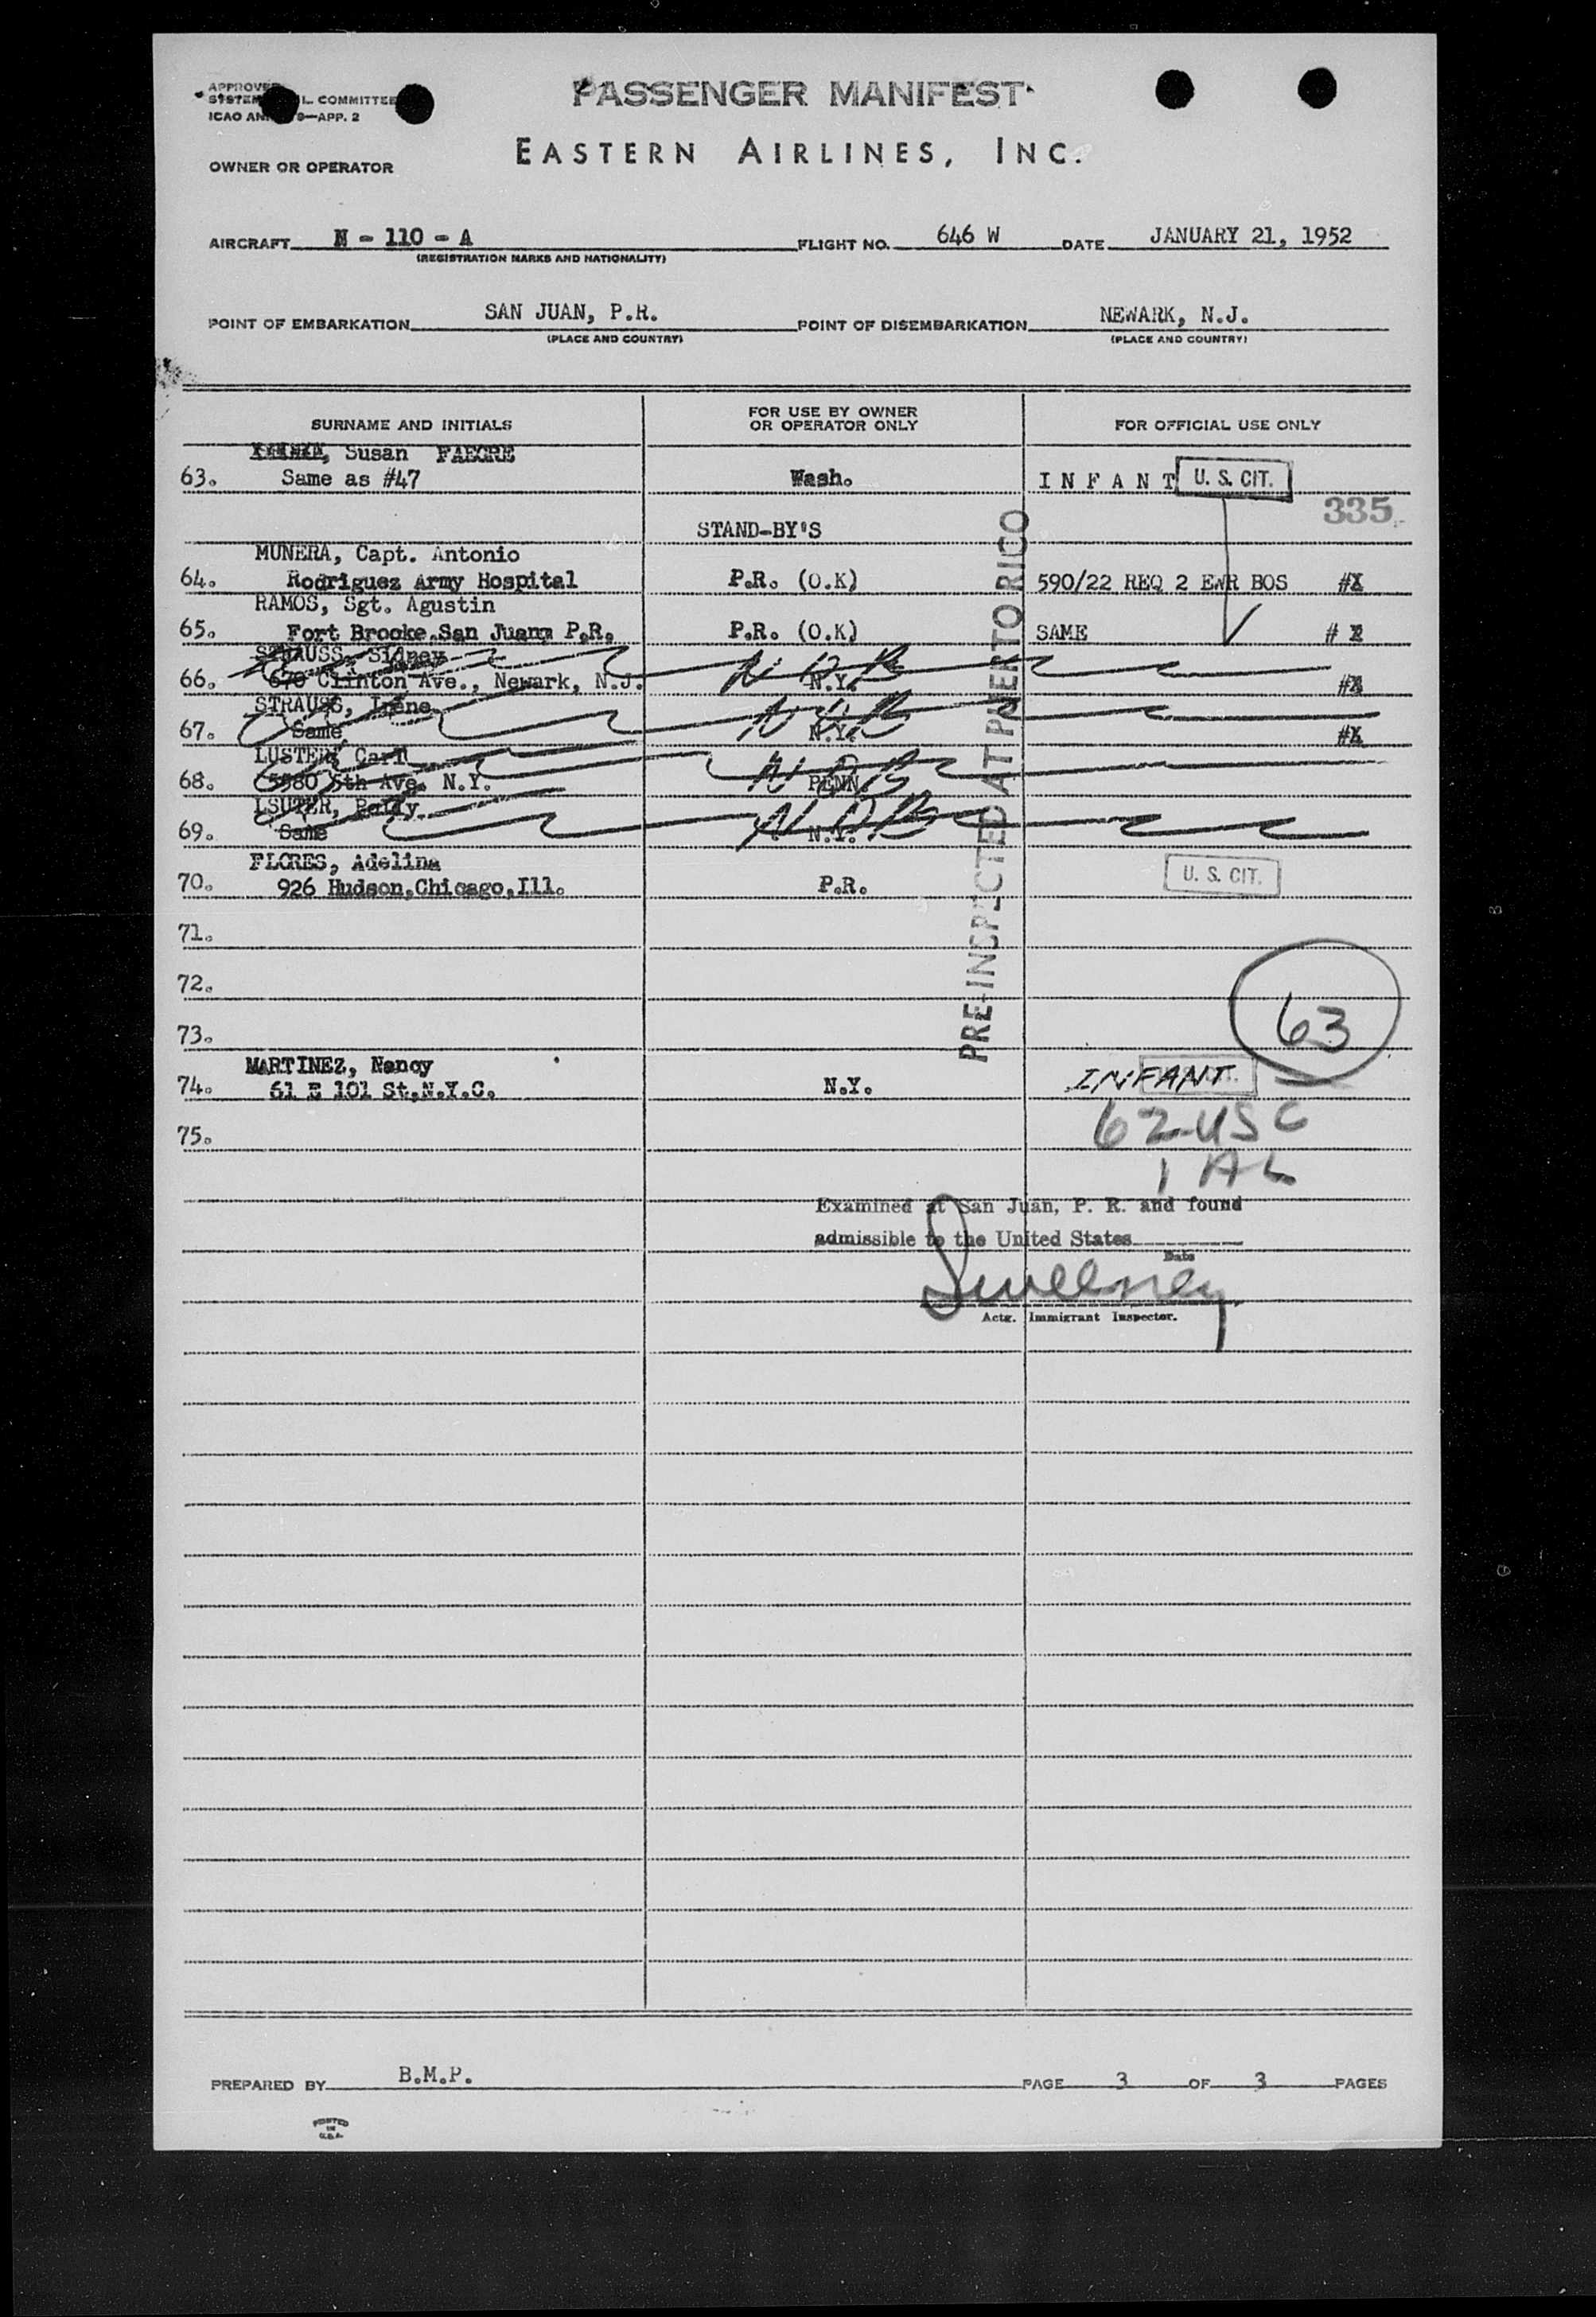 PASSENGER MANIFEST
L. COMMITTEE
ICAO 9—APP. 2
EASTERN AIRLINES, INC.
OWNER OR OPERATOR
AIRCRAFT N - 110 - A FLIGHT NO. 646 W DATE JANUARY 21, 1952
(REGISTRATION MARKS AND NATIONALITY)
POINT OF EMBARKATION SAN JUAN, P.R. POINT OF DISEMBARKATION NEWARK, N.J.
(PLACE AND COUNTRY) (PLACE AND COUNTRY)
SURNAME AND INITIALS FOR USE BY OWNER OR OPERATOR ONLY FOR OFFICIAL USE ONLY
Susan FAEGRE
63. Same as #47 Wash. I N F A N T U. S. CIT.
335
STAND-BY'S
MUNERA, Capt. Antonio
64. Rodriguez Army Hospital P.R. (O.K) 590/22 REQ 2 EWR BOS
RAMOS, Sgt. Agustin
65. Fort Brooke, San Juan P.R. P.R. (O.K) SAME
STRAUSS, Sidney
66. 670 Clinton Ave., Newark, N.J. N.Y.
STRAUSS, Irene
67. Same N.Y.
LUSTER, Carl
68. 5580 5th Ave. N.Y. PENN
LSUTER,
69. Same N.Y.
FLORES, Adelina
70. 926 Hudson, Chicago, Ill. P.R. U. S. CIT.
71.
72.
73.
63
MARTINEZ, Nancy
74. 61 E 101 St, N.Y.C. N.Y. INFANT
75.
62 USC
1 AL
PRE-INSPECTED AT PUERTO RICO
Examined at San Juan, P. R. and found
admissible to the United States
Date
Sweeney
Actg. Immigrant Inspector.
PREPARED BY B.M.P. PAGE 3 OF 3 PAGES
PRINTED
IN
U.S.A.